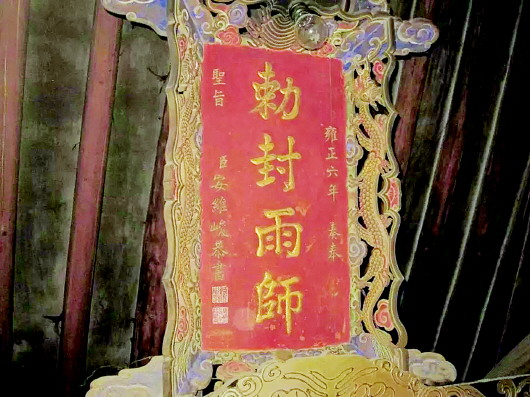 雍正六年 奉奉
勅封雨師
聖旨
臣安維峻恭書